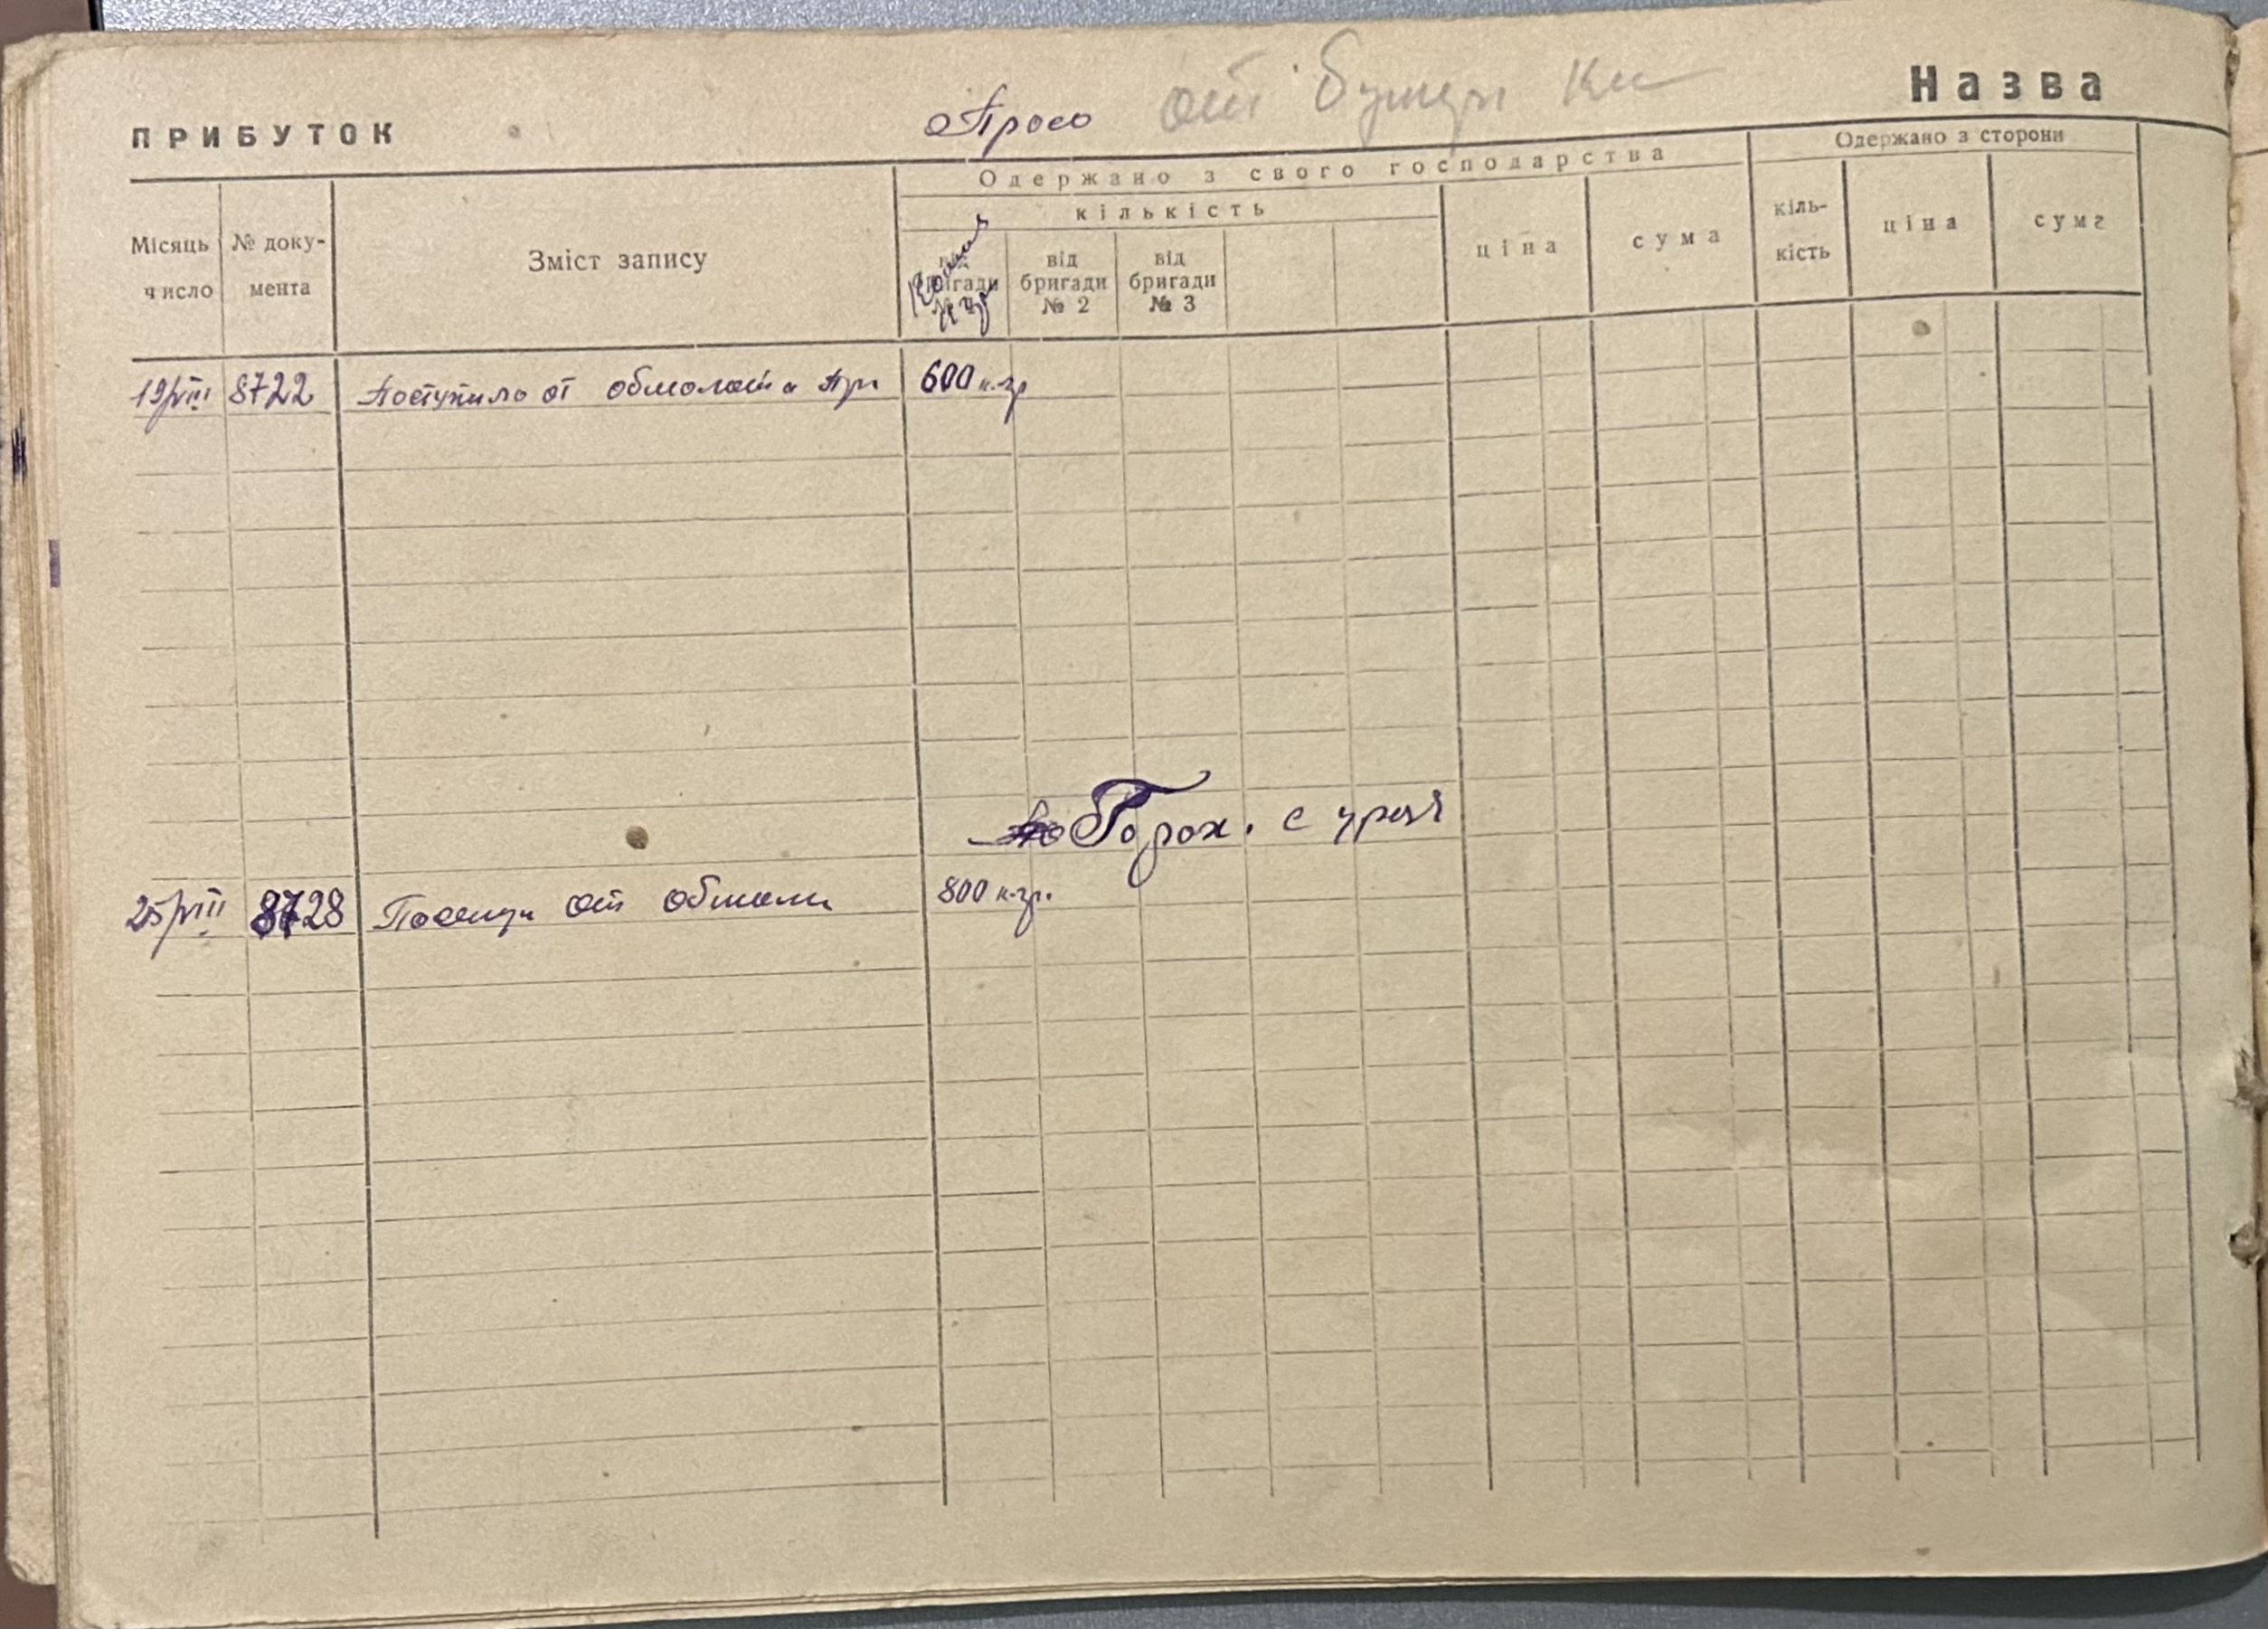 ПРИБУТОК
Просо от
Назва
Одержано з свого господарства
Одержано з сторони
Місяць число
№ доку-
мента
Зміст запису
кількість
бригади
від
бригади
№ 2
від
бригади
№ 3
ціна
сума
кіль-
кість
ціна
сума
19/VIII 8722 Поступило от обмолота Пр 600 к.гр
Горох. с урож
25/VIII 8728 от обмол 800 к.гр.